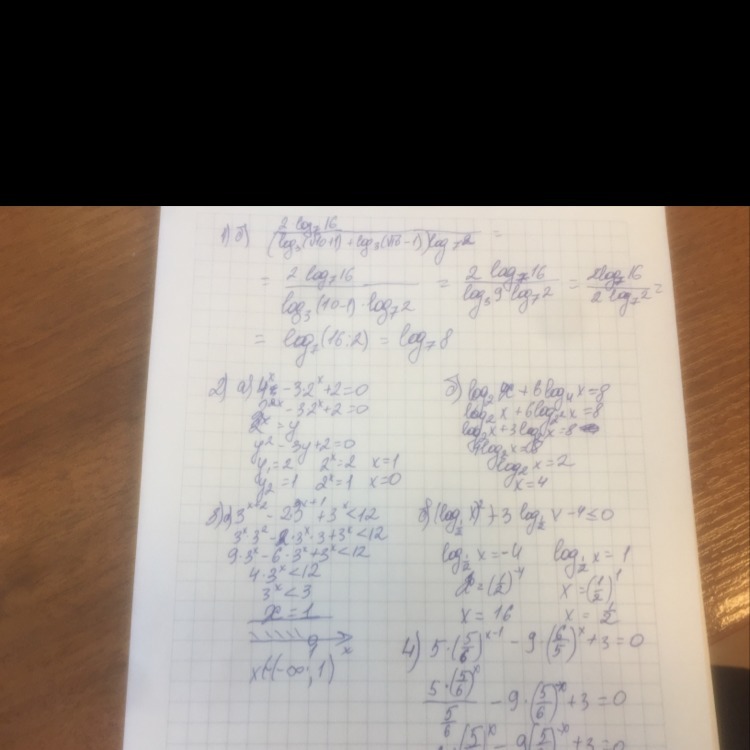 1) б) 2 log₇16 / ((log₃(√10+1) + log₃(√10-1)) log₇2) =
= 2 log₇16 / (log₃(10-1) · log₇2) = 2 log₇16 / (log₃9 log₇2) = 2log₇16 / (2 log₇2) =
= log₇(16:2) = log₇8
2) а) 4ˣ - 3·2ˣ + 2 = 0
2²ˣ - 3·2ˣ + 2 = 0
2ˣ = y
y² - 3y + 2 = 0
y₁ = 2 2ˣ = 2 x = 1
y₂ = 1 2ˣ = 1 x = 0
б) log₂x + 6 log₄x = 8
log₂x + 6 log₂²x = 8
log₂x + 3 log₂x = 8
4 log₂x = 8
log₂x = 2
x = 4
3ˣ⁺² - 2·3ˣ⁺¹ + 3ˣ < 12
3ˣ·3² - 2·3ˣ·3 + 3ˣ < 12
9·3ˣ - 6·3ˣ + 3ˣ < 12
4·3ˣ < 12
3ˣ < 3
x = 1
1 x
x∈(-∞; 1)
б) (log½x)² + 3 log½x - 4 ≤ 0
log½x = -4 log½x = 1
x = (1/2)⁻⁴ x = (1/2)¹
x = 16 x = 1/2
4) 5·(5/6)ˣ⁻¹ - 9·(6/5)ˣ + 3 = 0
5·(5/6)ˣ / (5/6) - 9·(5/6)⁻ˣ + 3 = 0